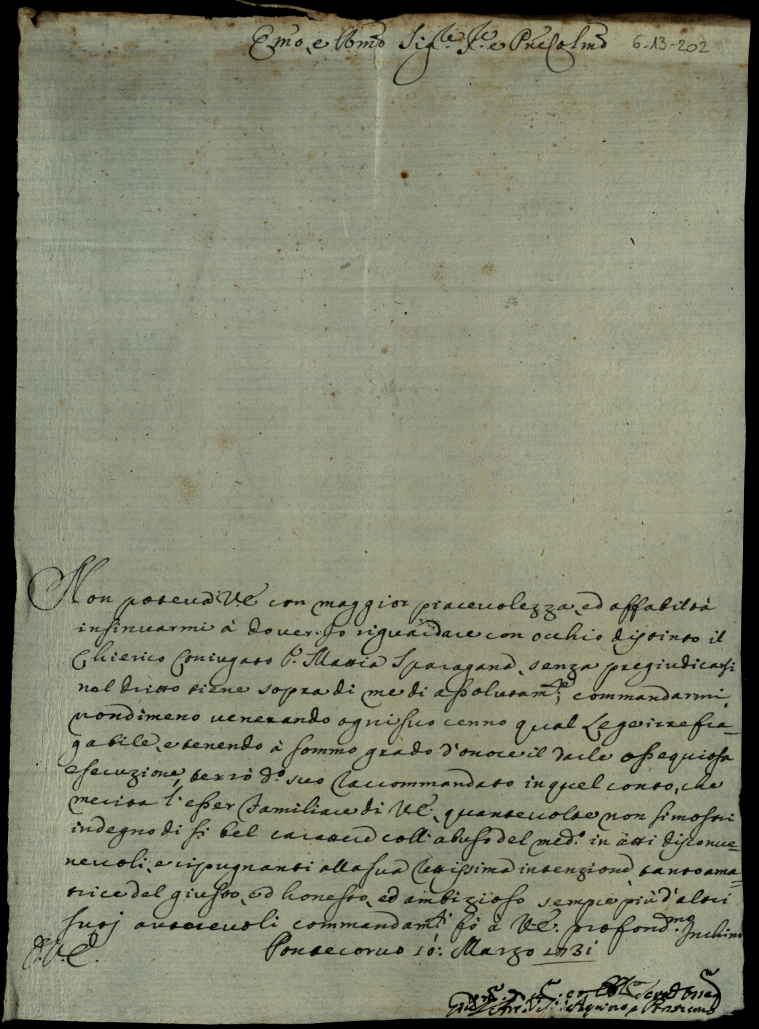 Emo, e Rmo Sig.re Sre e Pne Colmo 6-13-202
Non poteva V.E. con maggior piacevolezza, ed affabiltà
insinuarmi à dover Io riguardare con occhio distinto il
Chierico Coniugato P. Mattia Sparagana, senza pregiudicarsi
nel dritto tiene sopra di me di assolutam.te commandarmi,
nondimeno venerando ogni suo cenno qual Legge irrefra-
gabile, e tenendo à sommo grado d'onore il darle ossequiosa
esecuzione, terrò d.o suo raccommandato in quel conto, che
merita l'esser familiare di V.E., quantevolte non si mostri
indegno di sì bel carattere coll'abuso del med.o in atti disconve-
nevoli, e ripugnanti alla sua rettissima intenzione tanto ama-
trice del giusto, ed honesto, ed ambizioso sempre più d'altri
suoj autorevoli commandam.ti fò à V.E. profond.ma Inchino
D. V. E. Pontecorvo 10: Marzo 1731